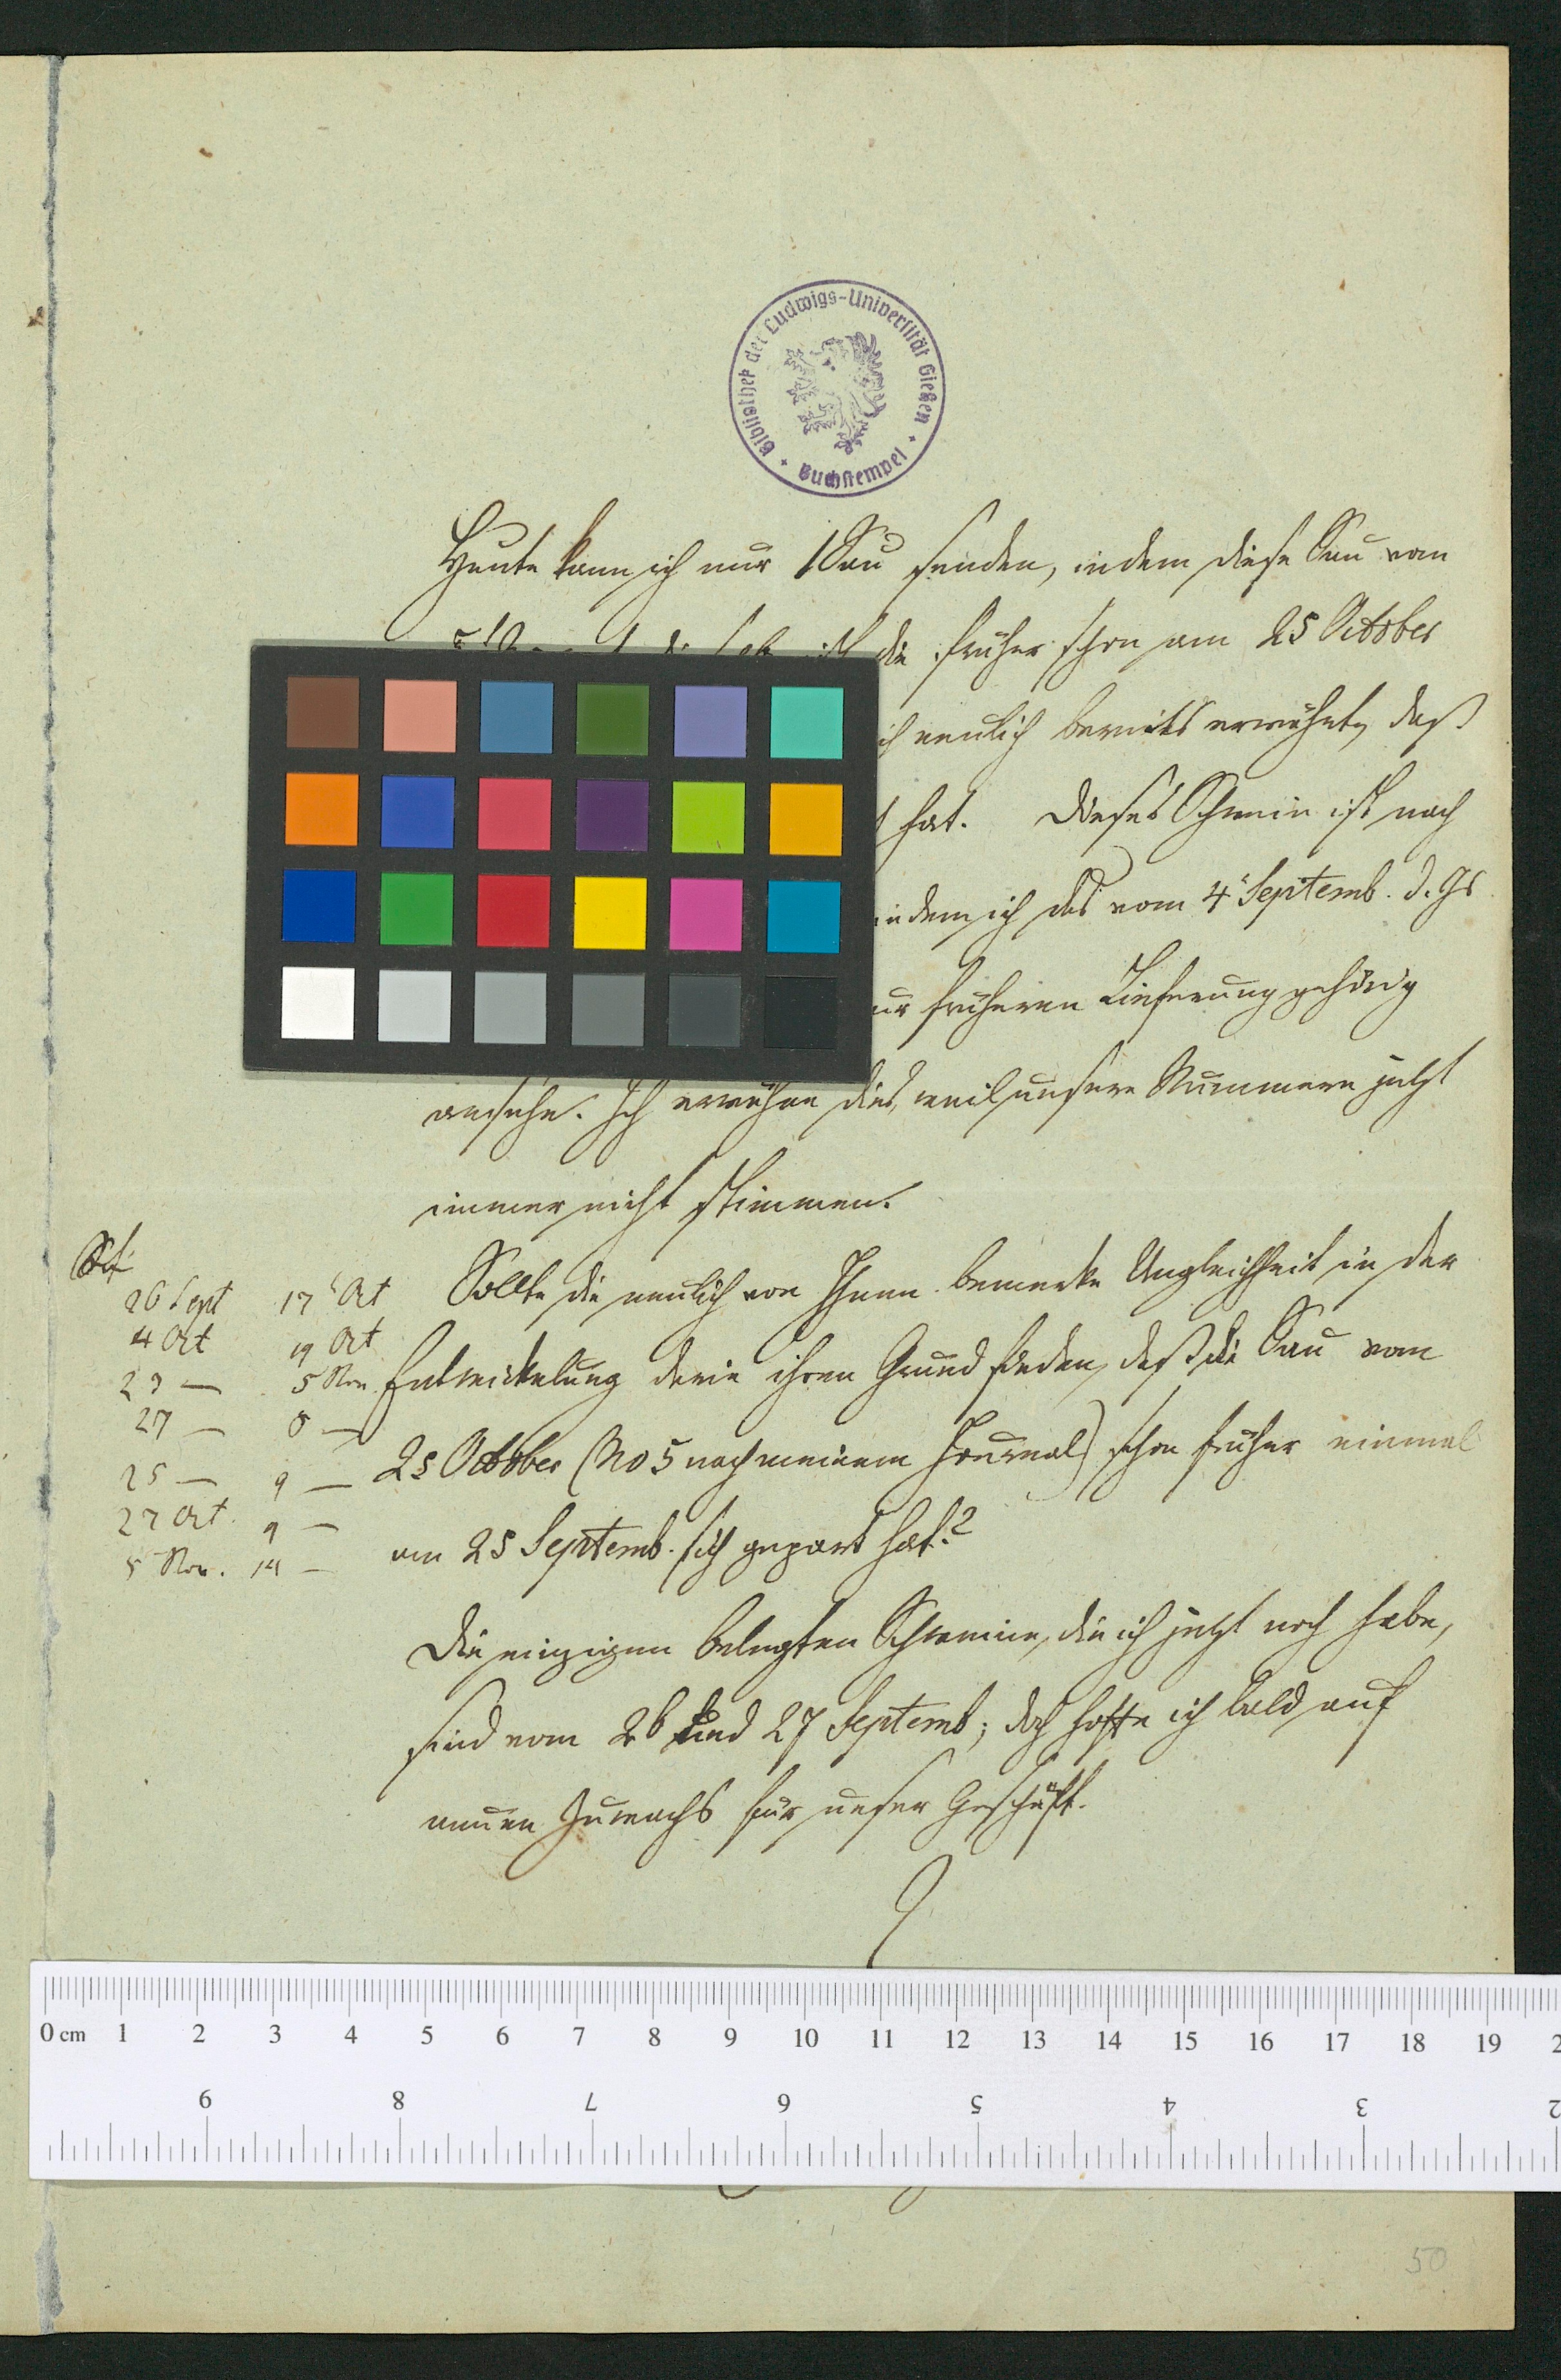 Bibliothek der Ludwigs-Universität Gießen
Buchstempel
Heute kann ich nur 1 Sau senden, indem diese Sau vom
die früher schon am 25 October
ich neulich bereits erwähnte, daß
hat. Dieses Schwein ist nach
indem ich das vom 4t Septemb. d. Js
zur früheren Lieferung gehörig
ansehe. Ich erwähne dies, weil unsere Nummern jetzt
immer nicht stimmen.
Sollte die neulich von Ihnen bemerkte Ungleichheit in der
Entwickelung darin ihren Grund finden, daß die Sau vom
25 October (No 5 nach meinem Journal) schon früher einmal
am 25 Septemb. sich gepaart hat?
Die einzigen belegten Schweine, die ich jetzt noch habe,
sind vom 26 und 27 Septemb; doch hoffe ich bald auf
neuen Zuwachs für unser Geschäft.
26 Sept 17 Oct
4 Oct 19 Oct
23 — 5 Nov
27 — 8 —
25 — 9 —
27 Oct. 9 —
5 Nov. 14 —
0 cm 1 2 3 4 5 6 7 8 9 10 11 12 13 14 15 16 17 18 19 2
9 8 7 6 5 4 3 2
50